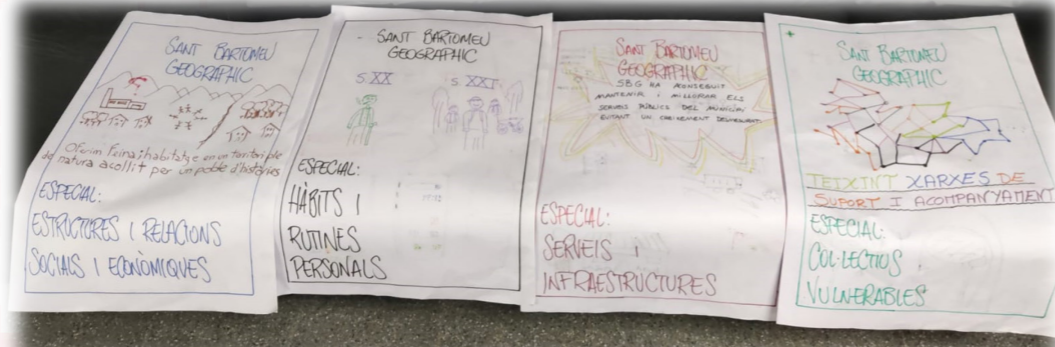 SANT BARTOMEU
GEOGRAPHIC
Oferim Feina i habitatge en un territori ple
de natura acollit per un poble d'històries
ESPECIAL:
ESTRUCTURES I RELACIONS
SOCIALS I ECONÒMIQUES
SANT BARTOMEU
GEOGRAPHIC
S XX
S XXI
ESPECIAL:
HÀBITS I
RUTINES
PERSONALS
SANT BARTOMEU
GEOGRAPHIC
SBG HA ACONSEGUIT
MANTENIR I MILLORAR ELS
SERVEIS PÚBLICS DEL MUNICIPI
EVITANT UN CREIXEMENT DESMESURAT
ESPECIAL:
SERVEIS I
INFRAESTRUCTURES
SANT BARTOMEU
GEOGRAPHIC
TEIXINT XARXES DE
SUPORT I ACOMPANYAMENT
ESPECIAL:
COL·LECTIUS
VULNERABLES